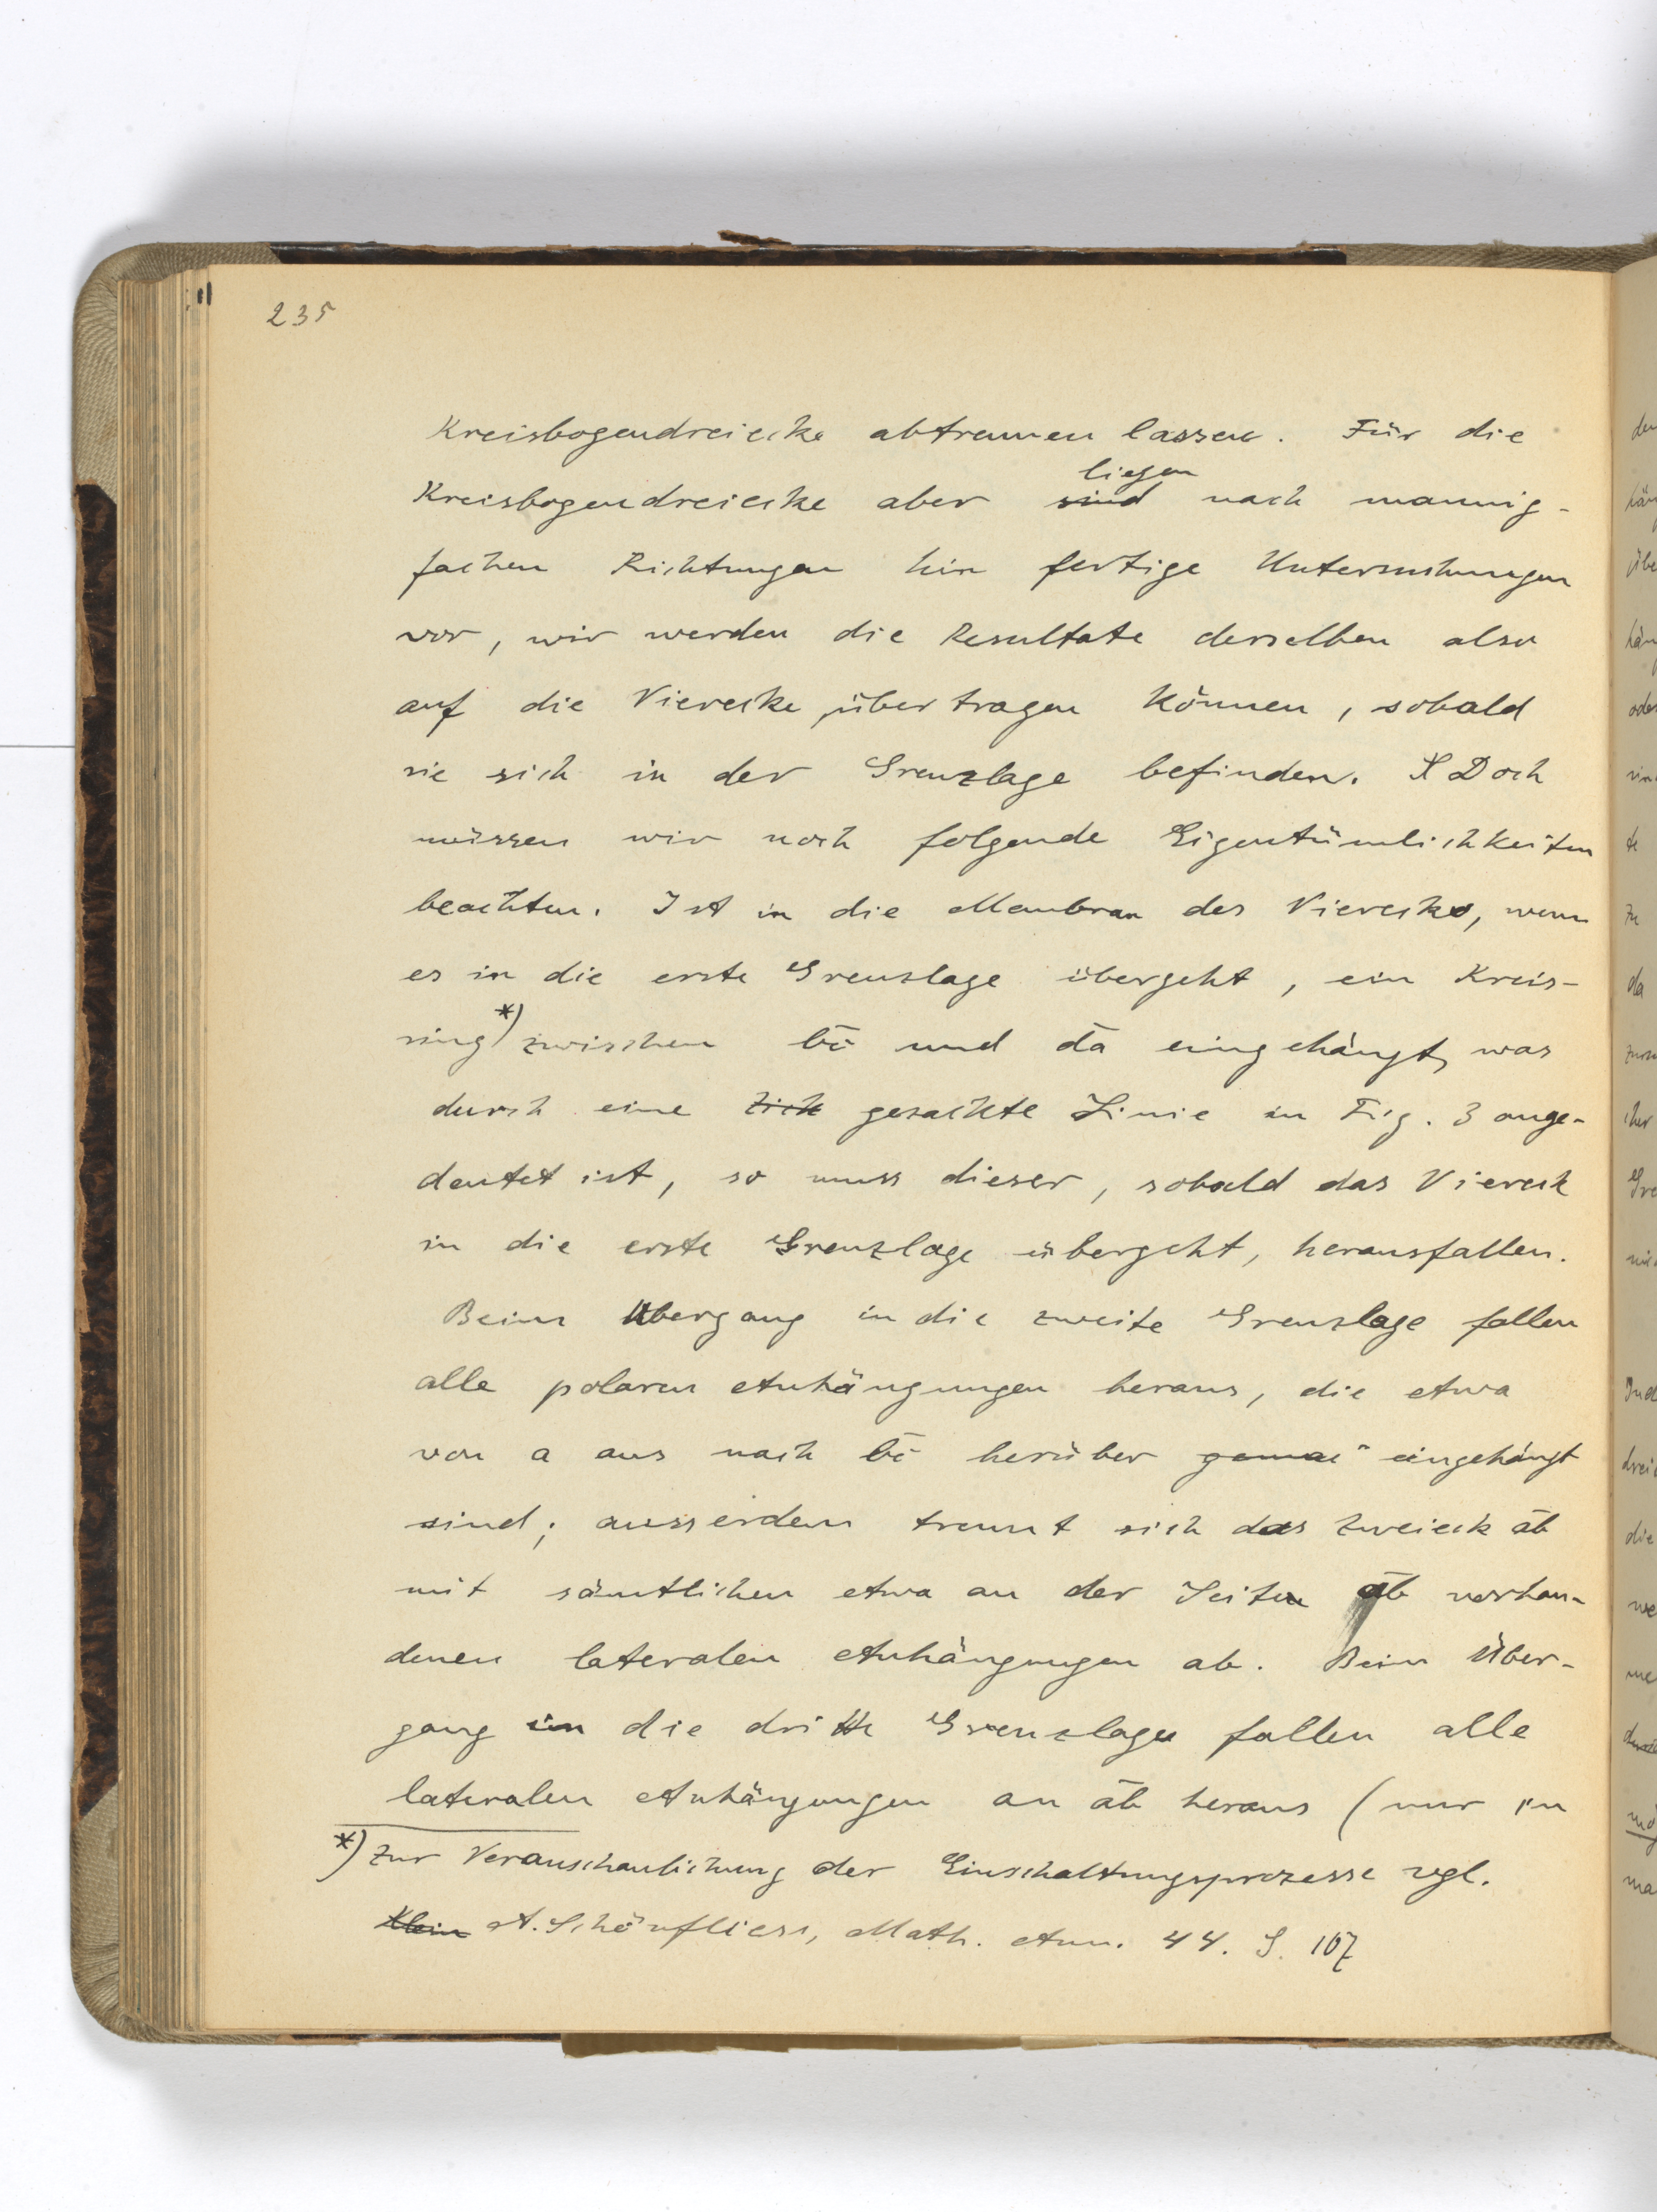 235
Kreisbogendreiecke abtrennen lassen. Für die
liegen
Kreisbogendreiecke aber sind nach mannig-
fachen Richtungen hin fertige Untersuchungen
vor, wir werden die Resultate derselben also
auf die Vierecke übertragen können, sobald
sie sich in der Grenzlage befinden. Doch
müssen wir noch folgende Eigentümlichkeiten
beachten. Ist in die Membran des Vierecks, wenn
es in die erste Grenzlage übergeht, ein Kreis-
ring *) zwischen b̄c̄ und d̄ā eingehängt, was
durch eine zick gezackte Linie in Fig. 3 ange-
deutet ist, so muss dieser, sobald das Viereck
in die erste Grenzlage übergeht, herausfallen.
Beim Übergang in die zweite Grenzlage fallen
alle polaren Anhängungen heraus, die etwa
von a aus nach b̄c̄ herüber eingehängt
sind; ausserdem trennt sich das Zweieck āb̄
mit sämtlichen etwa an der Seite āb̄ vorhan-
denen lateralen Anhängungen ab. Beim Über-
gang in die dritte Grenzlage fallen alle
lateralen Anhängungen an āb̄ heraus (nur in
*) Zur Veranschaulichung der Einschaltungsprozesse vgl.
Klein A. Schönfliess, Math. Ann. 44. S. 107